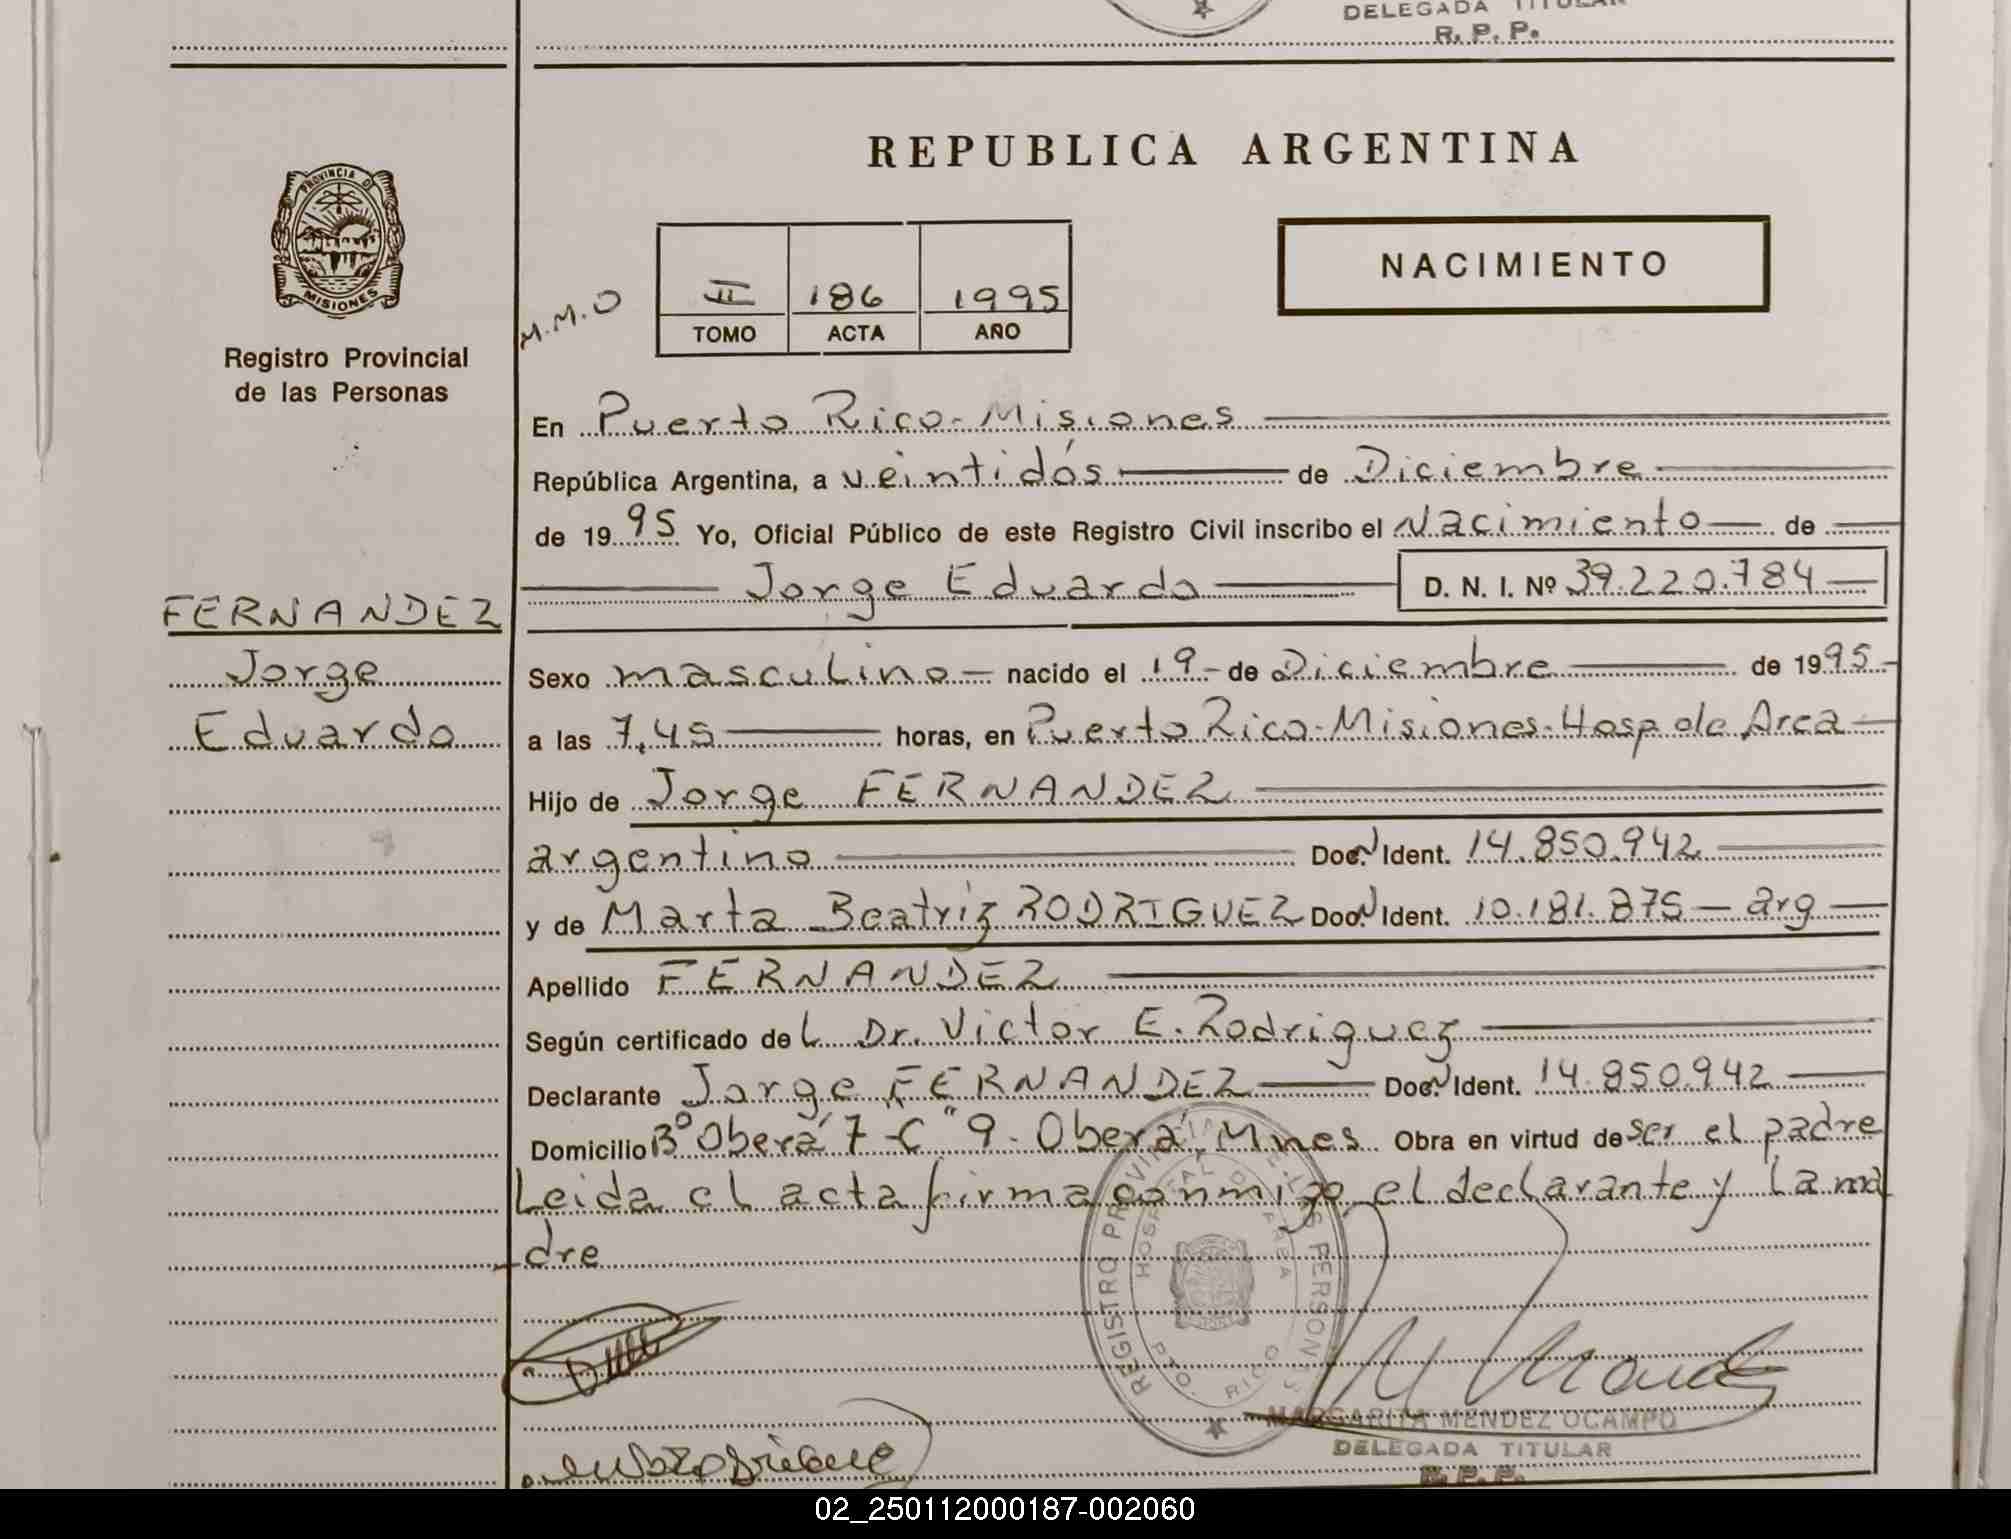 DELEGADA TITULAR
R. P. P.
REPUBLICA ARGENTINA
PROVINCIA DE
MISIONES
Registro Provincial
de las Personas
NACIMIENTO
M.M.O
II 186 1995
TOMO ACTA AÑO
En Puerto Rico-Misiones
República Argentina, a veintidós de Diciembre
de 1995 Yo, Oficial Público de este Registro Civil inscribo el Nacimiento de
Jorge Eduardo D. N. I. Nº 39.220.784
FERNANDEZ
Jorge
Eduardo
Sexo masculino nacido el 19 de Diciembre de 1995
a las 7,45 horas, en Puerto Rico-Misiones-Hosp de Area
Hijo de Jorge FERNANDEZ
argentino Doc. Ident. 14.850.942
y de Marta Beatriz RODRIGUEZ Doc. Ident. 10.181.875 - arg
Apellido FERNANDEZ
Según certificado del Dr. Victor E. Rodriguez
Declarante Jorge FERNANDEZ Doc. Ident. 14.850.942
Domicilio Bº Oberá 7-C" 9. Oberá, Mnes Obra en virtud de ser el padre
Leida el acta firma conmigo el declarante y la ma
dre
REGISTRO PROVINCIAL DE LAS PERSONAS
HOSPITAL DE AREA
PTO. RICO
MARGARITA MENDEZ OCAMPO
DELEGADA TITULAR
R. P. P.
02_250112000187-002060